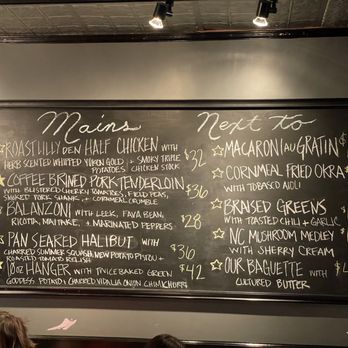 Mains
ROAST LILLY DEN HALF CHICKEN WITH
HERB SCENTED WHIPPED YUKON GOLD + SMOKY TRIPLE
POTATOES CHICKEN STOCK
$32
COFFEE BRINED PORK TENDERLOIN
WITH BLISTERED CHERRY TOMATOES, FIELD PEAS,
SMOKED PORK SHANK, + CORNMEAL CRUMBLE
$36
BALANZONI WITH LEEKS, FAVA BEAN,
RICOTTA, MARINARA, + MARINATED PEPPERS
$28
PAN SEARED HALIBUT WITH
CHARRED SUMMER SQUASH, NEW POTATO, PISTOU +
ROASTED TOMATO RELISH
$36
10oz HANGER WITH TWICE BAKED GREEN
GODDESS POTATO, CHARRED VIDALIA ONION CHIMICHURRI
$42
Next to
MACARONI AU GRATIN $
CORNMEAL FRIED OKRA $
WITH TOBASCO AIOLI
BRAISED GREENS $
WITH TOASTED CHILI + GARLIC
NC MUSHROOM MEDLEY $
WITH SHERRY CREAM
OUR BAGUETTE WITH $
CULTURED BUTTER